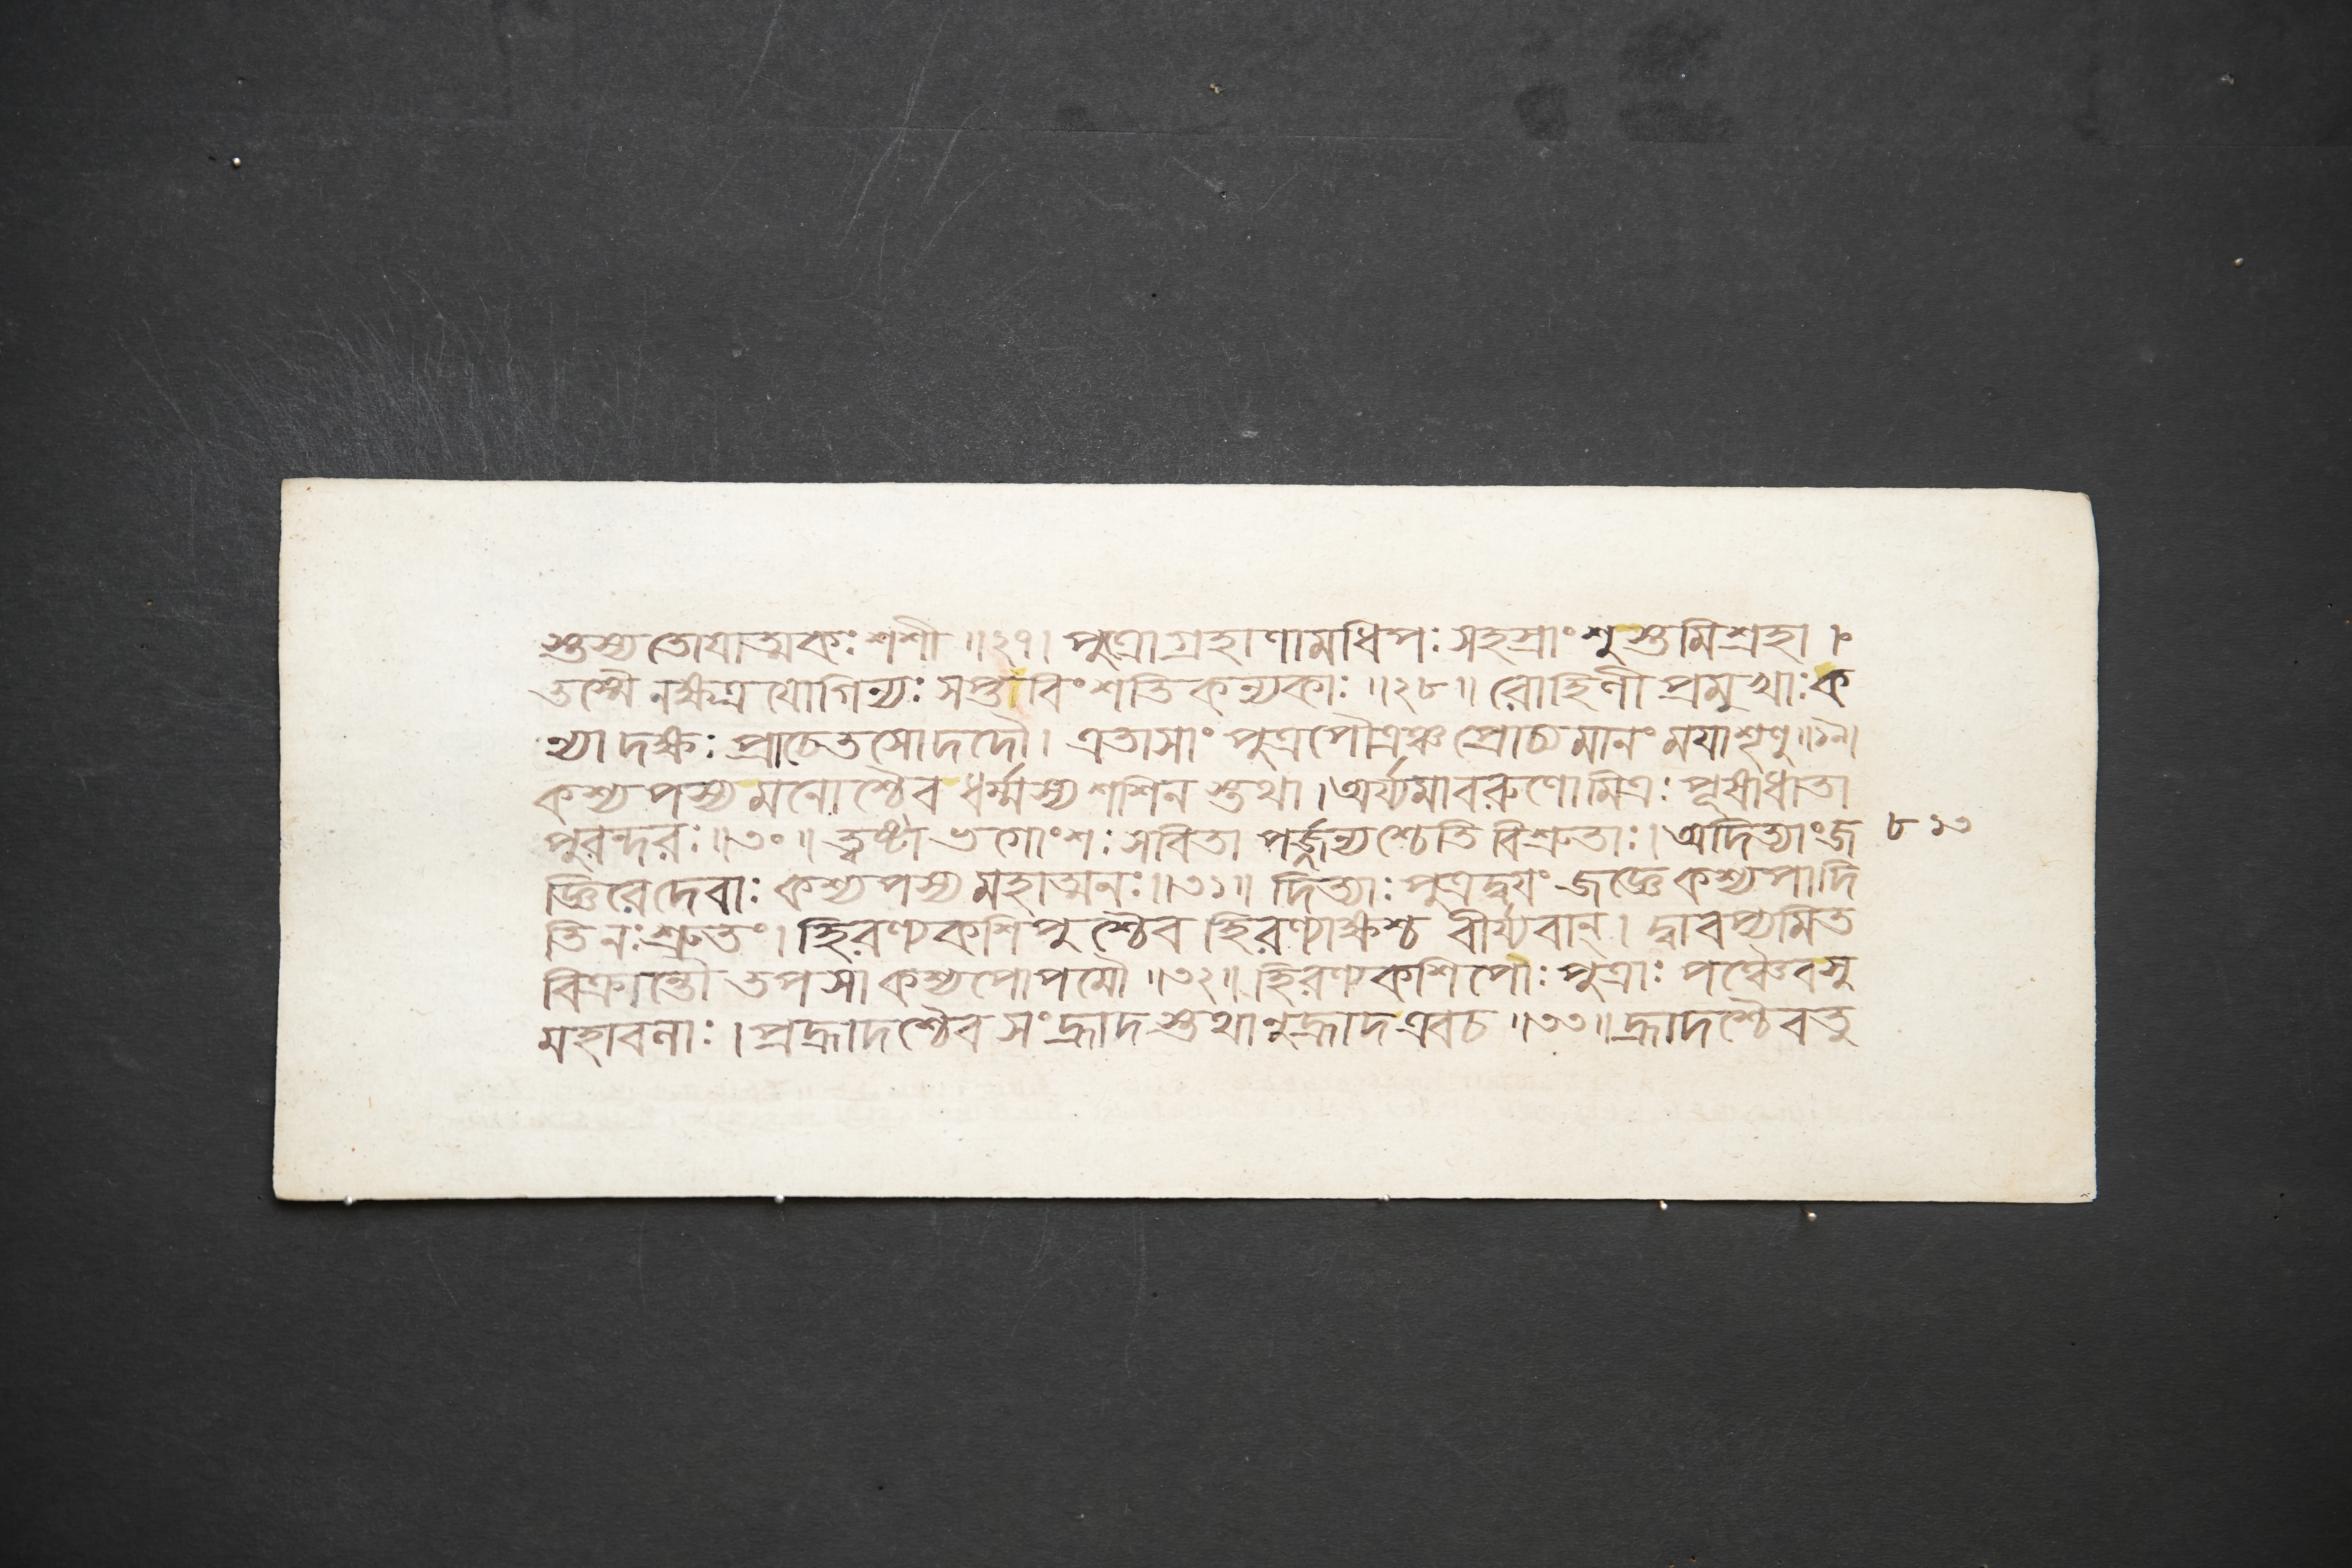 স্তস্য তোযাত্মকঃ শশী ॥২৭। পুত্রোগ্রহাণামধিপঃ সহস্রাংশুস্তমিশ্রহা ।
তস্মৈ নক্ষত্র যোগিন্যঃ সপ্তাবিংশতি কন্যকাঃ ॥২৮॥ রোহিণী প্রমুখাঃ ক
ন্যা দক্ষঃ প্রাচেতসোদদৌ। এতাসাং পুত্রপৌত্রঞ্চ প্রোচ্যমানং মযাশৃণু॥২৯।
কশ্যপস্য মনোশ্চৈব ধর্ম্মস্য শশিন স্তথা। অর্য্যমাবরুণোমিত্রঃ পূষাধাতা
পুরন্দরঃ॥৩০॥ ত্বষ্টা ভগোংশঃ সবিতা পর্জ্জন্যশ্চেতি বিশ্রুতাঃ। অদিত্যাংজ ৮১৩
জ্ঞিরে দেবাঃ কশ্যপস্য মহাত্মনঃ॥৩১॥ দিত্যাঃ পুত্রদ্বযং জজ্ঞে কশ্যপাদি
তি নঃ শ্রুতং। হিরণ্যকশিপুশ্চৈব হিরণ্যাক্ষশ্চ বীর্য্যবান্। দ্বাবপ্যমিত
বিক্রান্তৌ তপসা কশ্যপোপমৌ ॥৩২॥ হিরণ্যকশিপোঃ পুত্রাঃ পঞ্চৈবসু
মহাবনাঃ। প্রহ্রাদশ্চৈব সংহ্রাদ স্তথানুহ্রাদ এবচ ॥৩৩॥ হ্রাদশ্চৈবতু